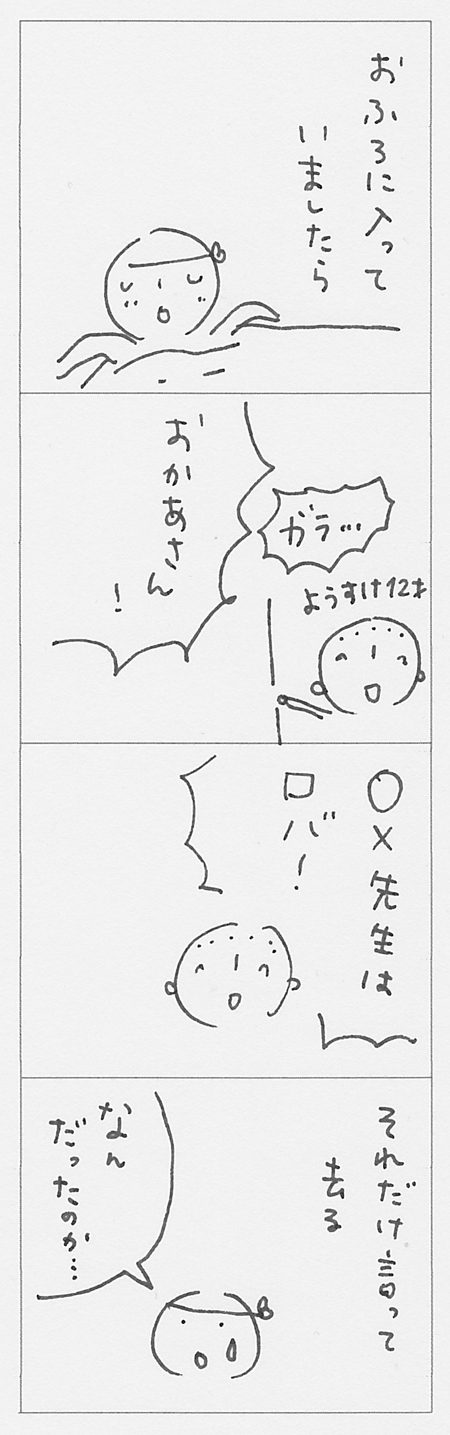 おふろに入って
いましたら
ガラ…
ようすけ12才
おかあさん
！
〇×先生は
ロバ！
それだけ言って
去る
なん
だったのか…